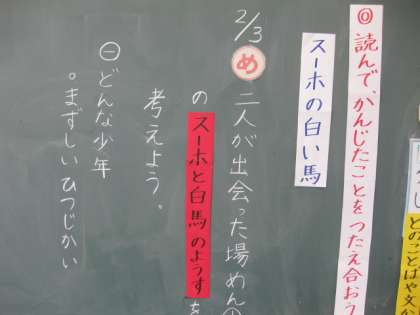 ◎読んで、かんじたことをつたえ合おう
スーホの白い馬
2/3
め 二人が出会った場めん
の スーホと白馬のようすを
考えよう。
㊀どんな少年
。まずしいひつじかい
とのことばや文